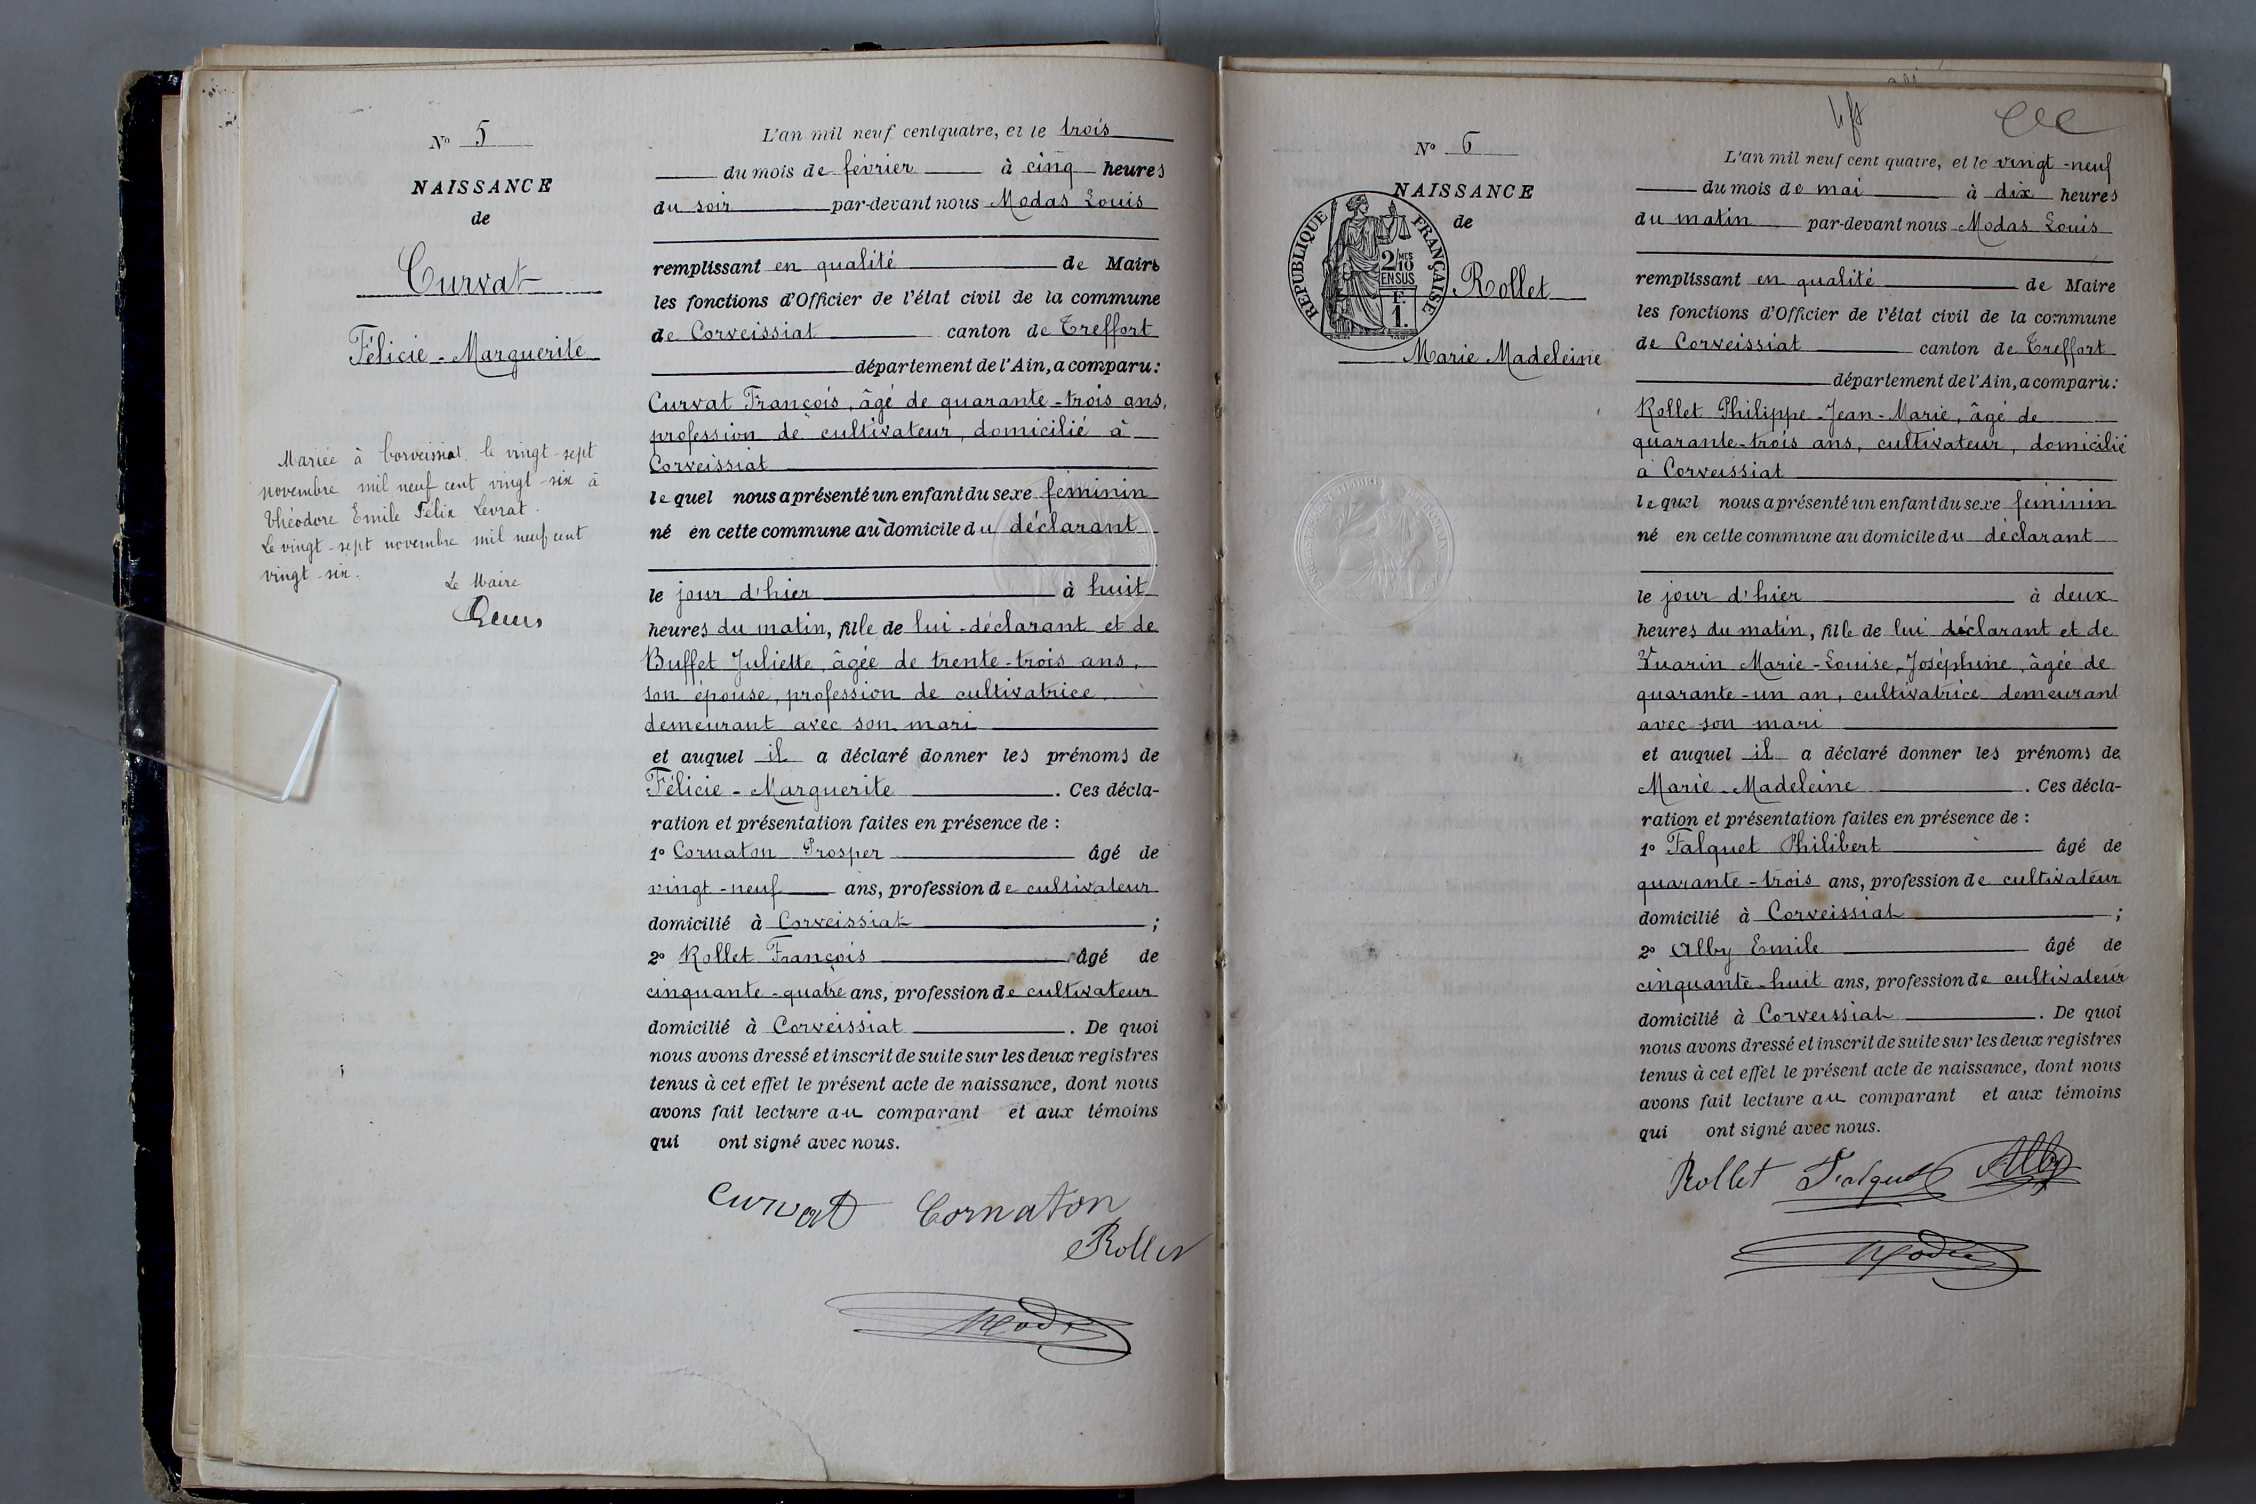 N° 5
NAISSANCE
de
Curvat
Félicie - Marguerite
Mariée à Corveissiat le vingt-sept
novembre mil neuf cent vingt-six à
Théodore Emile Félix Levrat.
Le vingt-sept novembre mil neuf cent
vingt-six.
Le Maire
L'an mil neuf cent quatre, et le trois
du mois de février à cinq heures
du soir par-devant nous Modas Louis
remplissant en qualité de Maire
les fonctions d'Officier de l'état civil de la commune
de Corveissiat canton de Treffort
département de l'Ain, a comparu:
Curvat François, âgé de quarante-trois ans,
profession de cultivateur, domicilié à
Corveissiat
le quel nous a présenté un enfant du sexe féminin
né en cette commune au domicile du déclarant
le jour d'hier à huit
heures du matin, fille de lui-déclarant et de
Buffet Juliette, âgée de trente-trois ans,
son épouse, profession de cultivatrice,
demeurant avec son mari
et auquel il a déclaré donner les prénoms de
Félicie - Marguerite. Ces décla-
ration et présentation faites en présence de :
1° Cornaton Prosper âgé de
vingt-neuf ans, profession de cultivateur
domicilié à Corveissiat ;
2° Rollet François âgé de
cinquante-quatre ans, profession de cultivateur
domicilié à Corveissiat. De quoi
nous avons dressé et inscrit de suite sur les deux registres
tenus à cet effet le présent acte de naissance, dont nous
avons fait lecture au comparant et aux témoins
qui ont signé avec nous.
Curvat Cornaton
Rollet
N° 6
NAISSANCE
de
RÉPUBLIQUE FRANÇAISE
2/10 MES
EN SUS
F.
1.
Rollet
Marie Madeleine
L'an mil neuf cent quatre, et le vingt-neuf
du mois de mai à dix heures
du matin par-devant nous Modas Louis
remplissant en qualité de Maire
les fonctions d'Officier de l'état civil de la commune
de Corveissiat canton de Treffort
département de l'Ain, a comparu:
Rollet Philippe-Jean-Marie, âgé de
quarante-trois ans, cultivateur, domicilié
à Corveissiat
le quel nous a présenté un enfant du sexe féminin
né en cette commune au domicile du déclarant
le jour d'hier à deux
heures du matin, fille de lui déclarant et de
Vuarin Marie-Louise-Joséphine, âgée de
quarante-un an, cultivatrice demeurant
avec son mari
et auquel il a déclaré donner les prénoms de
Marie-Madeleine. Ces décla-
ration et présentation faites en présence de :
1° Falquet Philibert âgé de
quarante-trois ans, profession de cultivateur
domicilié à Corveissiat ;
2° Alby Emile âgé de
cinquante-huit ans, profession de cultivateur
domicilié à Corveissiat. De quoi
nous avons dressé et inscrit de suite sur les deux registres
tenus à cet effet le présent acte de naissance, dont nous
avons fait lecture au comparant et aux témoins
qui ont signé avec nous.
Rollet Falquet Alby